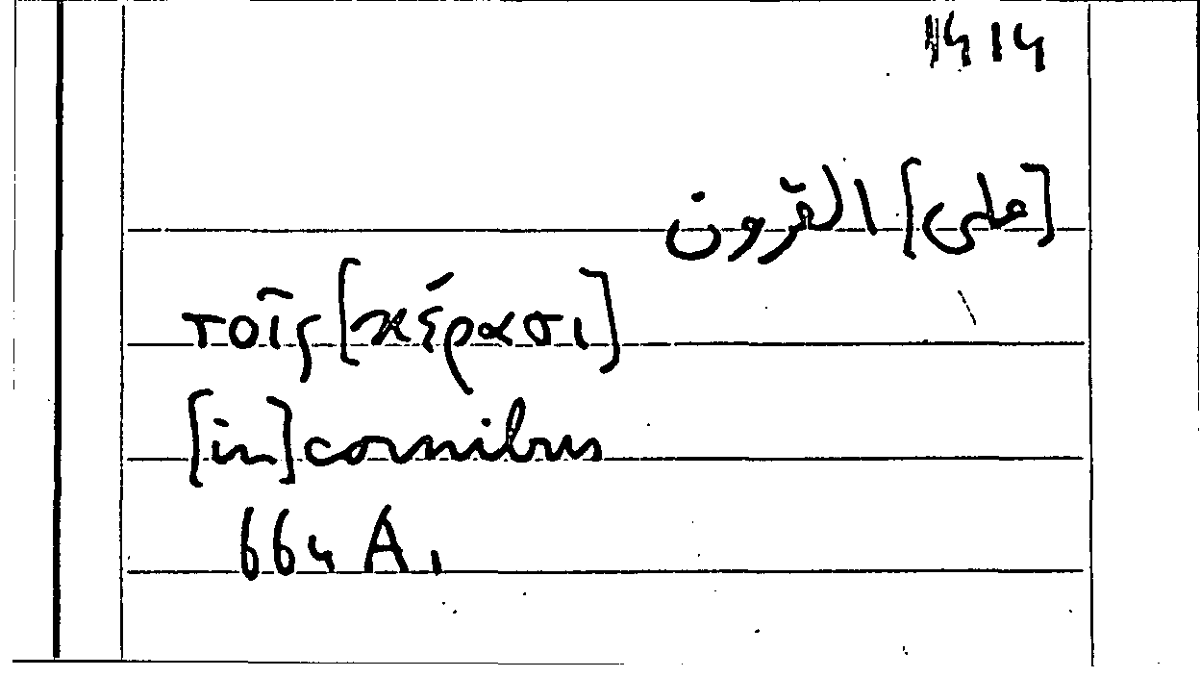 1414
[على] القرون
τοῖς [κέρασι]
[in] cornibus
664 A 1